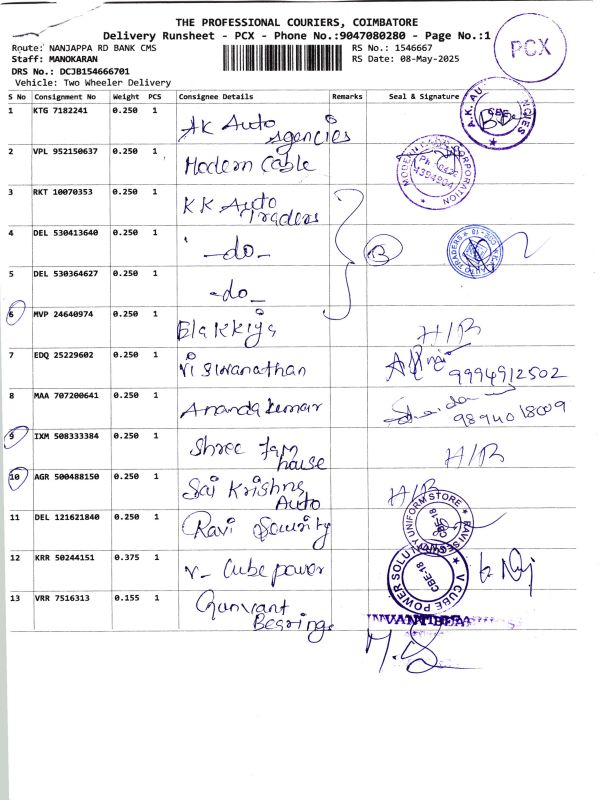 THE PROFESSIONAL COURIERS, COIMBATORE
Delivery Runsheet - PCX - Phone No.:9047080280 - Page No.:1
PCX
Route: NANJAPPA RD BANK CMS
RS No.: 1546667
Staff: MANOKARAN
RS Date: 08-May-2025
DRS No.: DCJB154666701
Vehicle: Two Wheeler Delivery
S No Consignment No Weight PCS Consignee Details Remarks Seal & Signature
1 KTG 7182241 0.250 1 AK Auto Agencies
2 VPL 952150637 0.250 1 Modern Cable
3 RKT 10070353 0.250 1 KK Auto Traders
4 DEL 530413640 0.250 1 -do-
5 DEL 530364627 0.250 1 -do-
6 MVP 24640974 0.250 1 Elakkiya H/R
7 EDQ 25229602 0.250 1 Viswanathan 9994912502
8 MAA 707200641 0.250 1 Anandakumar 9894018009
9 IXM 508333384 0.250 1 Shree Jam house H/R
10 AGR 500488150 0.250 1 Sai Krishna Auto H/R
11 DEL 121621840 0.250 1 Ravi Security
UNIFORM STORE
CBE-18
12 KRR 50244151 0.375 1 V-Cube power
V CUBE POWER SOLU
CBE-18
13 VRR 7516313 0.155 1 Gunvant Bearings